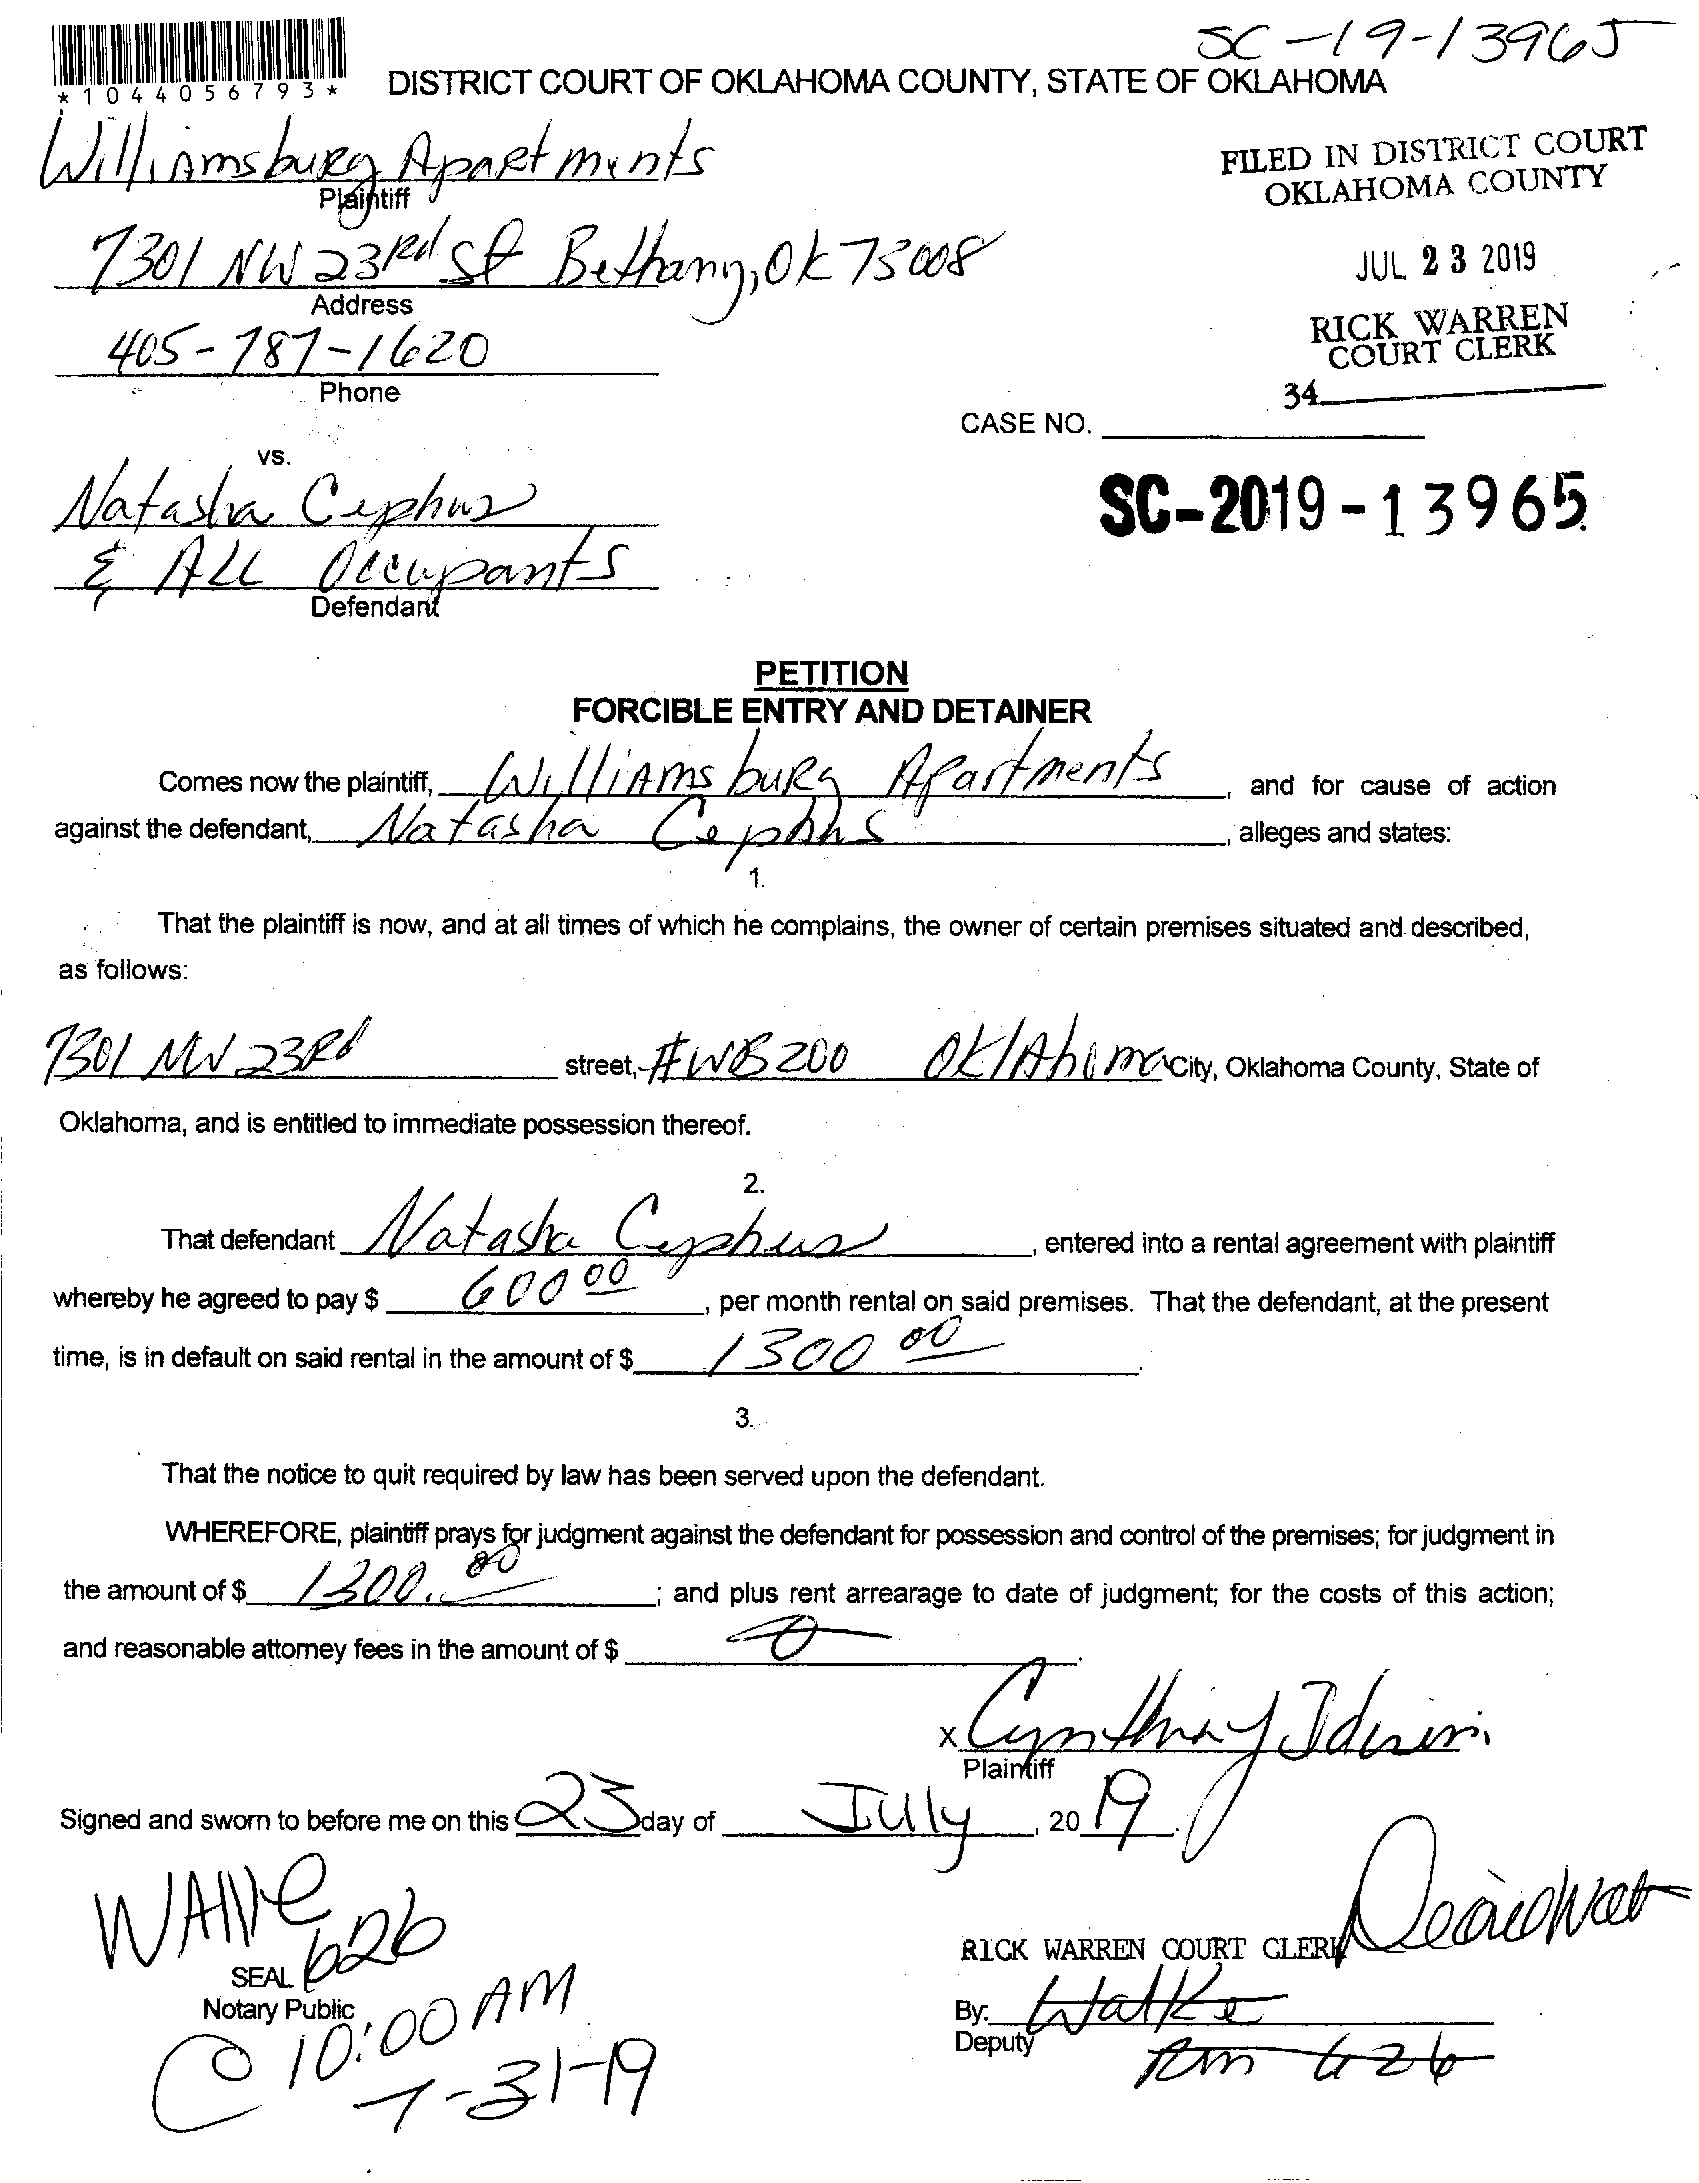 SC-19-13965
*1044056793*
DISTRICT COURT OF OKLAHOMA COUNTY, STATE OF OKLAHOMA
Williamsburg Apartments
Plaintiff
FILED IN DISTRICT COURT
OKLAHOMA COUNTY
7301 NW 23rd St Bethany, OK 73008
Address
JUL 23 2019
405-787-1620
Phone
RICK WARREN
COURT CLERK
34
CASE NO.
vs.
Natasha Cephus
& ALL Occupants
Defendant
SC-2019-13965
PETITION
FORCIBLE ENTRY AND DETAINER
Comes now the plaintiff, Williamsburg Apartments, and for cause of action
against the defendant, Natasha Cephus, alleges and states:
1.
That the plaintiff is now, and at all times of which he complains, the owner of certain premises situated and described,
as follows:
7301 NW 23Rd street, #WB200 Oklahoma City, Oklahoma County, State of
Oklahoma, and is entitled to immediate possession thereof.
2.
That defendant Natasha Cephus, entered into a rental agreement with plaintiff
whereby he agreed to pay $ 600 00, per month rental on said premises. That the defendant, at the present
time, is in default on said rental in the amount of $ 1300 00.
3.
That the notice to quit required by law has been served upon the defendant.
WHEREFORE, plaintiff prays for judgment against the defendant for possession and control of the premises; for judgment in
the amount of $ 1300.00; and plus rent arrearage to date of judgment; for the costs of this action;
and reasonable attorney fees in the amount of $ 0.
x Cynthia
Plaintiff
Signed and sworn to before me on this 23 day of July, 2019.
WAIVE
626
SEAL
Notary Public
@ 10:00 AM
7-31-19
RICK WARREN COURT CLERK
By: Walke
Deputy
Rm 626